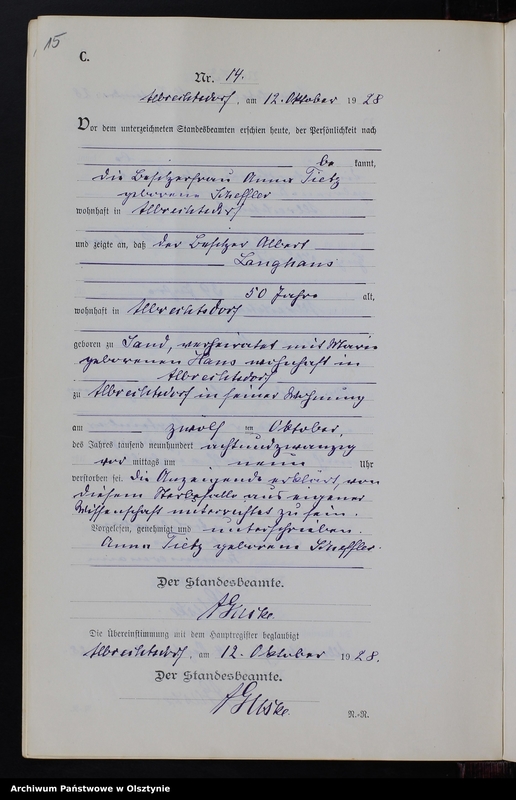 15
C.
Nr. 14.
Albrechtsdorf, am 12. Oktober 1928
Vor dem unterzeichneten Standesbeamten erschien heute, der Persönlichkeit nach
be kannt,
die Besitzerfrau Anna Tietz
geborene Scheffler
wohnhaft in Albrechtsdorf
und zeigte an, daß der Besitzer Albert
Langhans
50 Jahre alt,
wohnhaft in Albrechtsdorf
geboren zu Sand, verheiratet mit Marie
geborenen Hans wohnhaft in
Albrechtsdorf
zu Albrechtsdorf in seiner Wohnung
am zwölf ten Oktober
des Jahres tausend neunhundert achtundzwanzig
vor mittags um neun Uhr
verstorben sei. Die Anzeigende erklärt, von
diesem Sterbefalle aus eigener
Wissenschaft unterrichtet zu sein.
Vorgelesen, genehmigt und unterschrieben.
Anna Tietz geborene Scheffler.
Der Standesbeamte.
Die Übereinstimmung mit dem Hauptregister beglaubigt
Albrechtsdorf, am 12. Oktober 1928.
Der Standesbeamte.
N.-R.
Archiwum Państwowe w Olsztynie